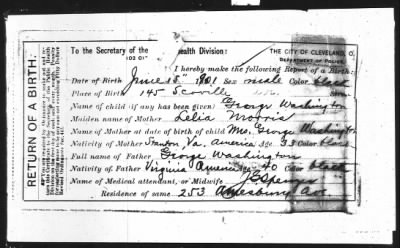 RETURN OF A BIRTH.
To the Secretary of the ealth Division:
THE CITY OF CLEVELAND, O.
DEPARTMENT OF POLICE.
I hereby make the following Report of a Birth:
Date of Birth June 15" 1901 Sex male Color black
Place of Birth 145 Scoville
Name of child if any has been given George Washington
Maiden name of Mother Lelia Morris
Name of Mother at date of birth of child Mrs. George Washington
Nativity of Mother Stanton, Va. America Age 33 Color black
Full name of Father George Washington
Nativity of Father Virginia America Age 40 Color black
Name of Medical attendant, or Midwife
Residence of same. 253 Amesbury Ave